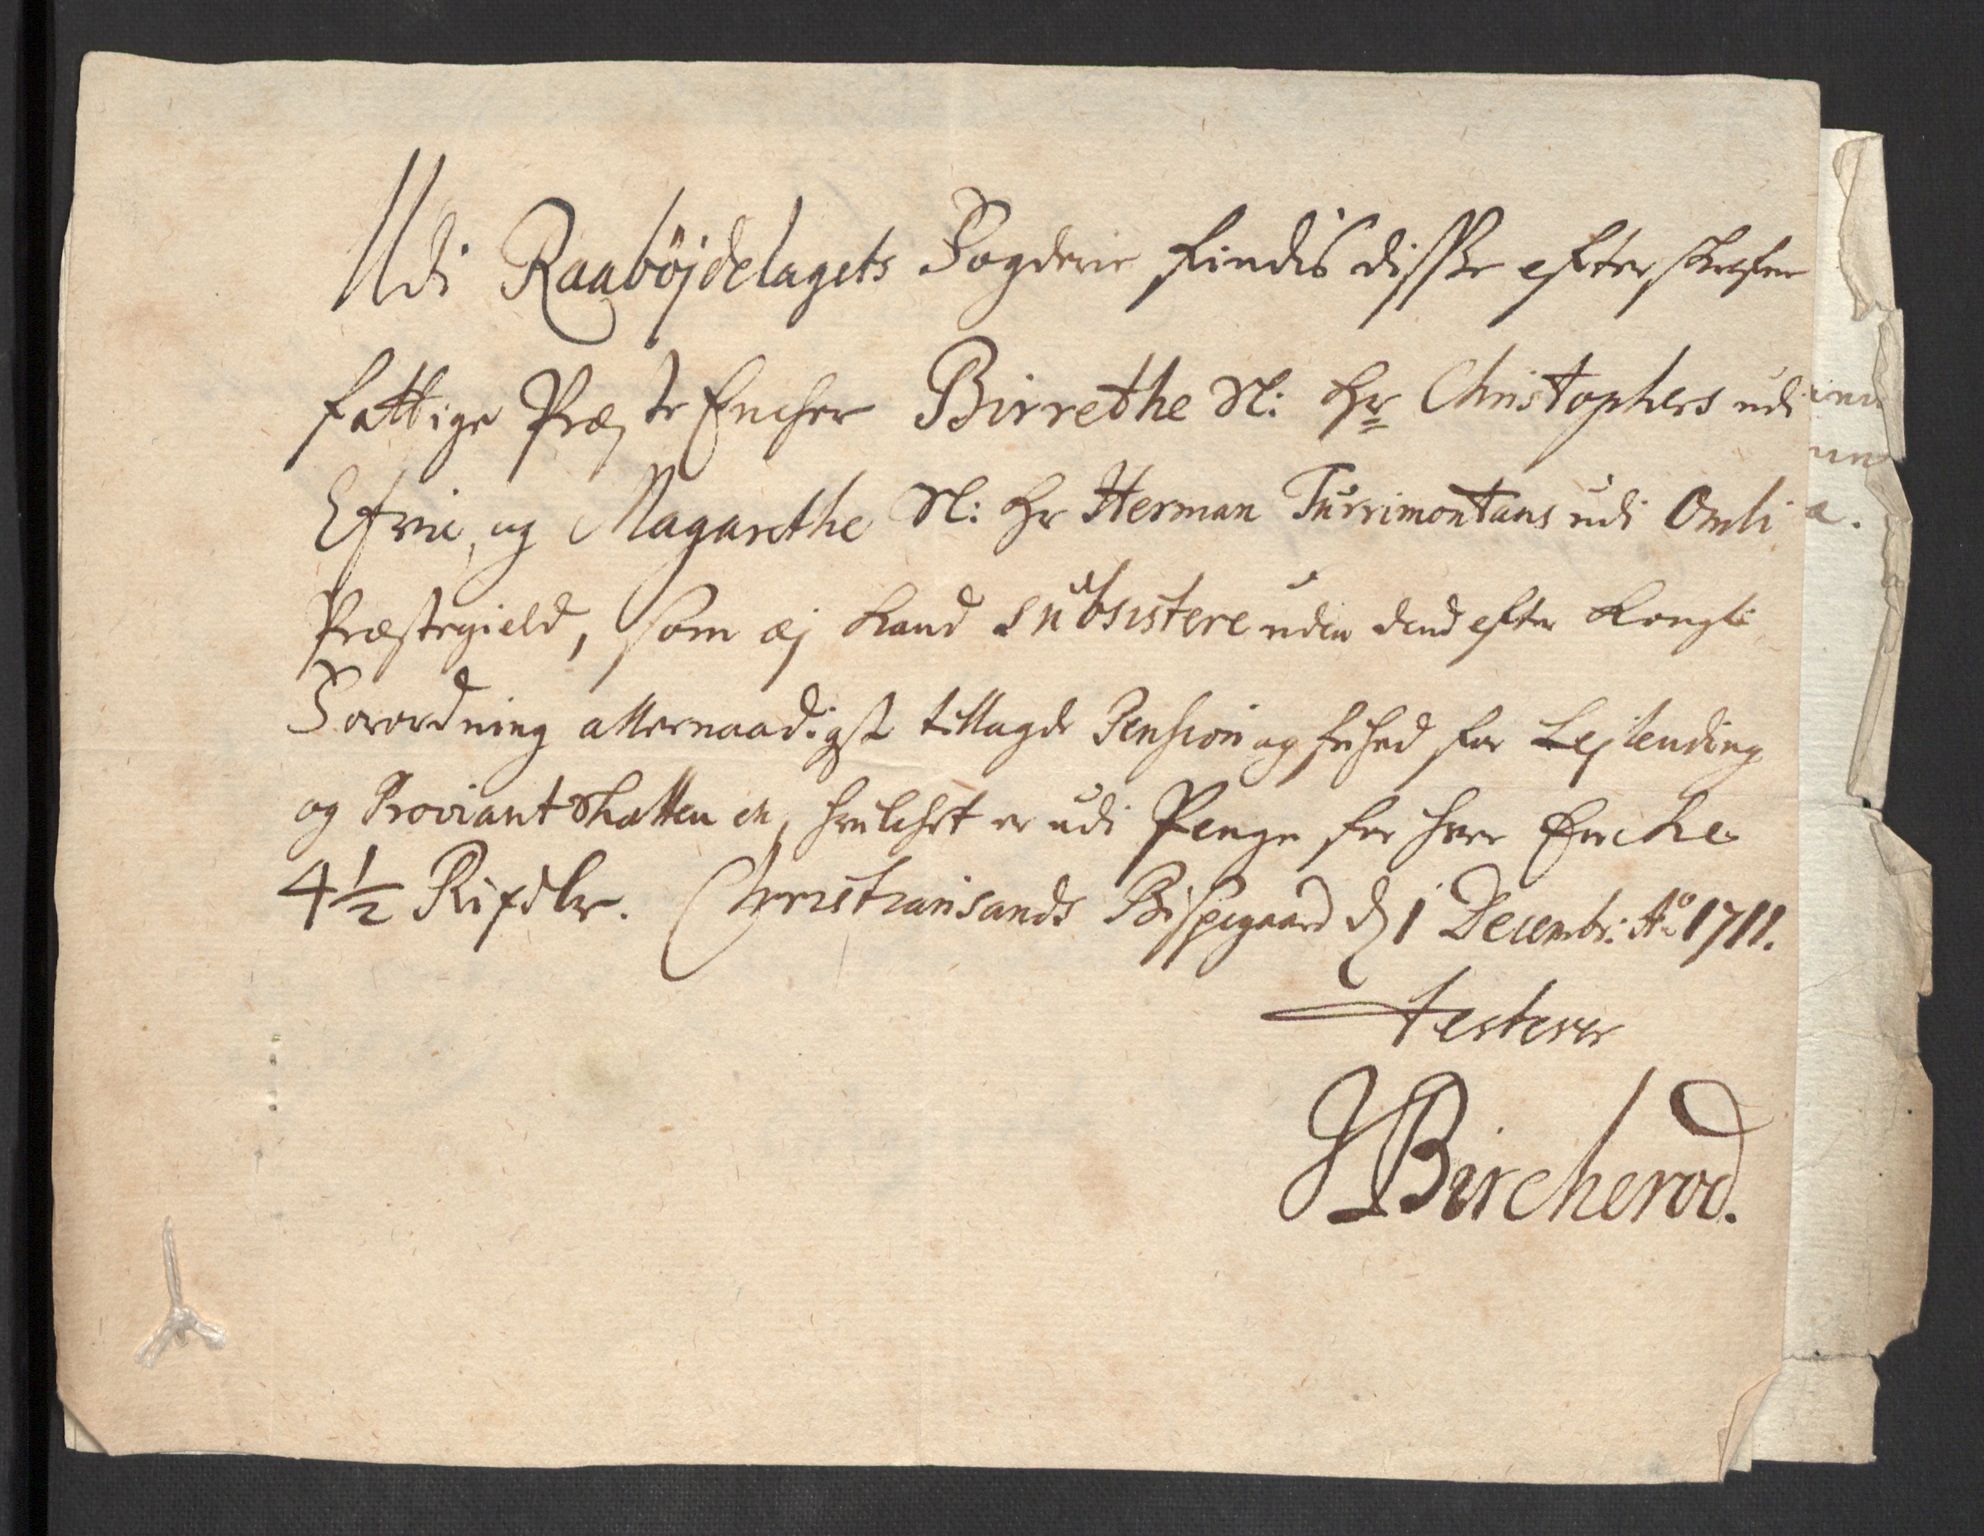 Udi Raabøjdelagets Fogderie findis disse efterskrefne
fattige Præste Encher Birrethe Sl: Hr Christophers udi
Efvie, og Magarethe Sl: Hr Herman Turrimontans udi Omli
Præstegield, som æj kand subsistere uden dend efter Kongl:
Forordning allernaadigst tillagde Pension og frihed for Lejlending
og Proviant Skatten etc, hvilchet er udi Penge for hver Encke
4½ Rixdlr. Christiansands Bispegaard d 1 Decembr: Ao 1711.
testerer
J Bircherod.